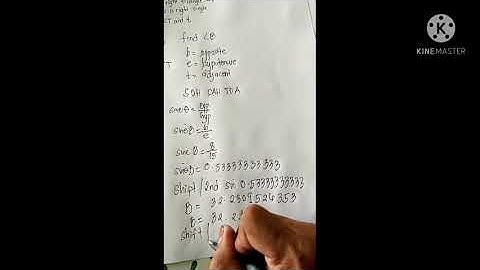 right triangle
is right angle
T and t.
find <B
b = opposite
e = hypotenuse
T t = adjacent
SOH CAH TOA
sine B = opp/hyp
sine B = b/e
sine B = 8/15
sine B = 0.53333333333
shift / 2nd sin 0.53333333333
B = 32.2309526353
B = 32.23
shift
KINEMASTER